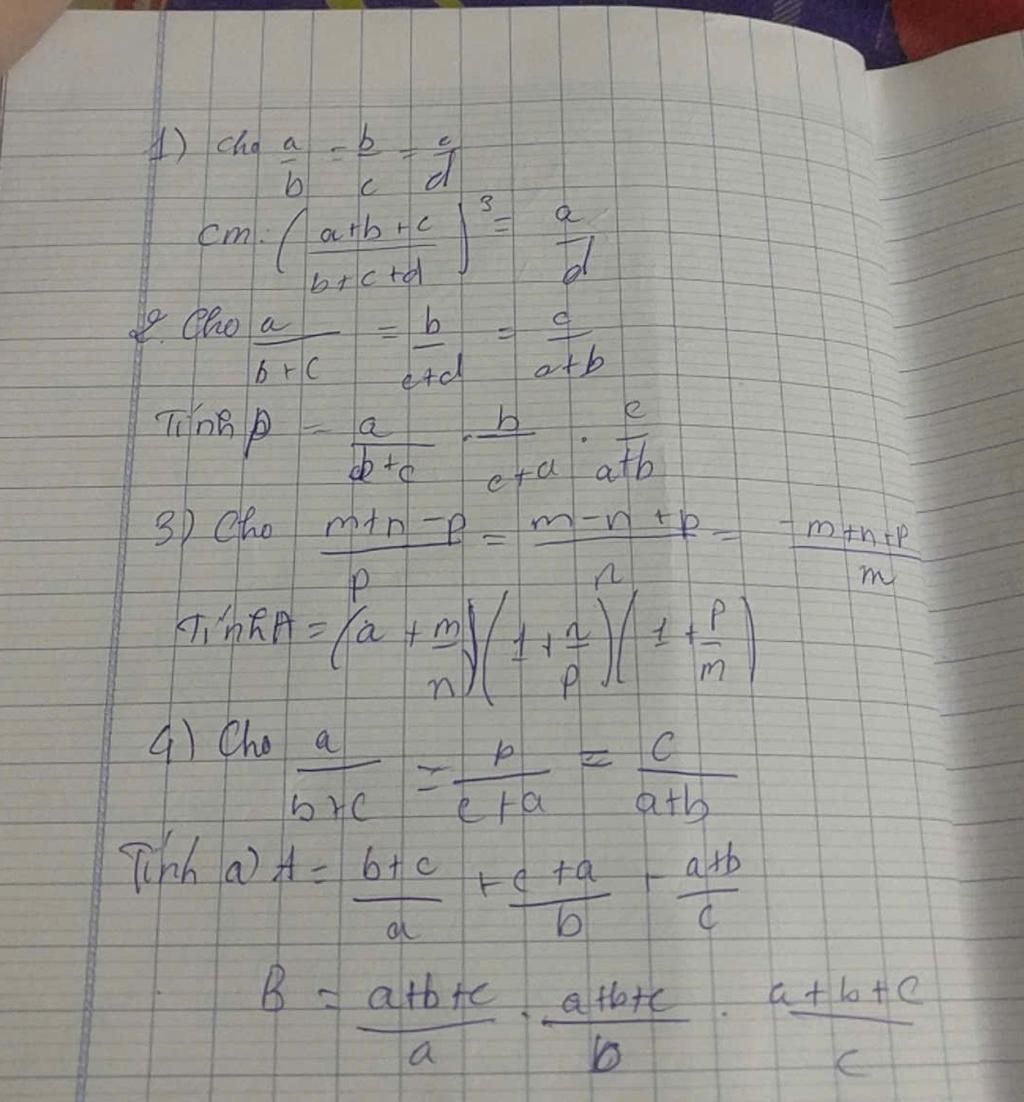 1) Cho a/b = b/c = c/d
cm: ((a+b+c)/(b+c+d))^3 = a/d
2. Cho a/(b+c) = b/(c+d) = c/(a+b)
Tính P = a/(b+c) . b/(c+a) . c/(a+b)
3) Cho (m+n-p)/p = (m-n+p)/n = (-m+n+p)/m
Tính A = (a + m/n)(1 + n/p)(1 + p/m)
4) Cho a/(b+c) = b/(c+a) = c/(a+b)
Tính a) A = (b+c)/a + (c+a)/b + (a+b)/c
B = (a+b+c)/a . (a+b+c)/b . (a+b+c)/c